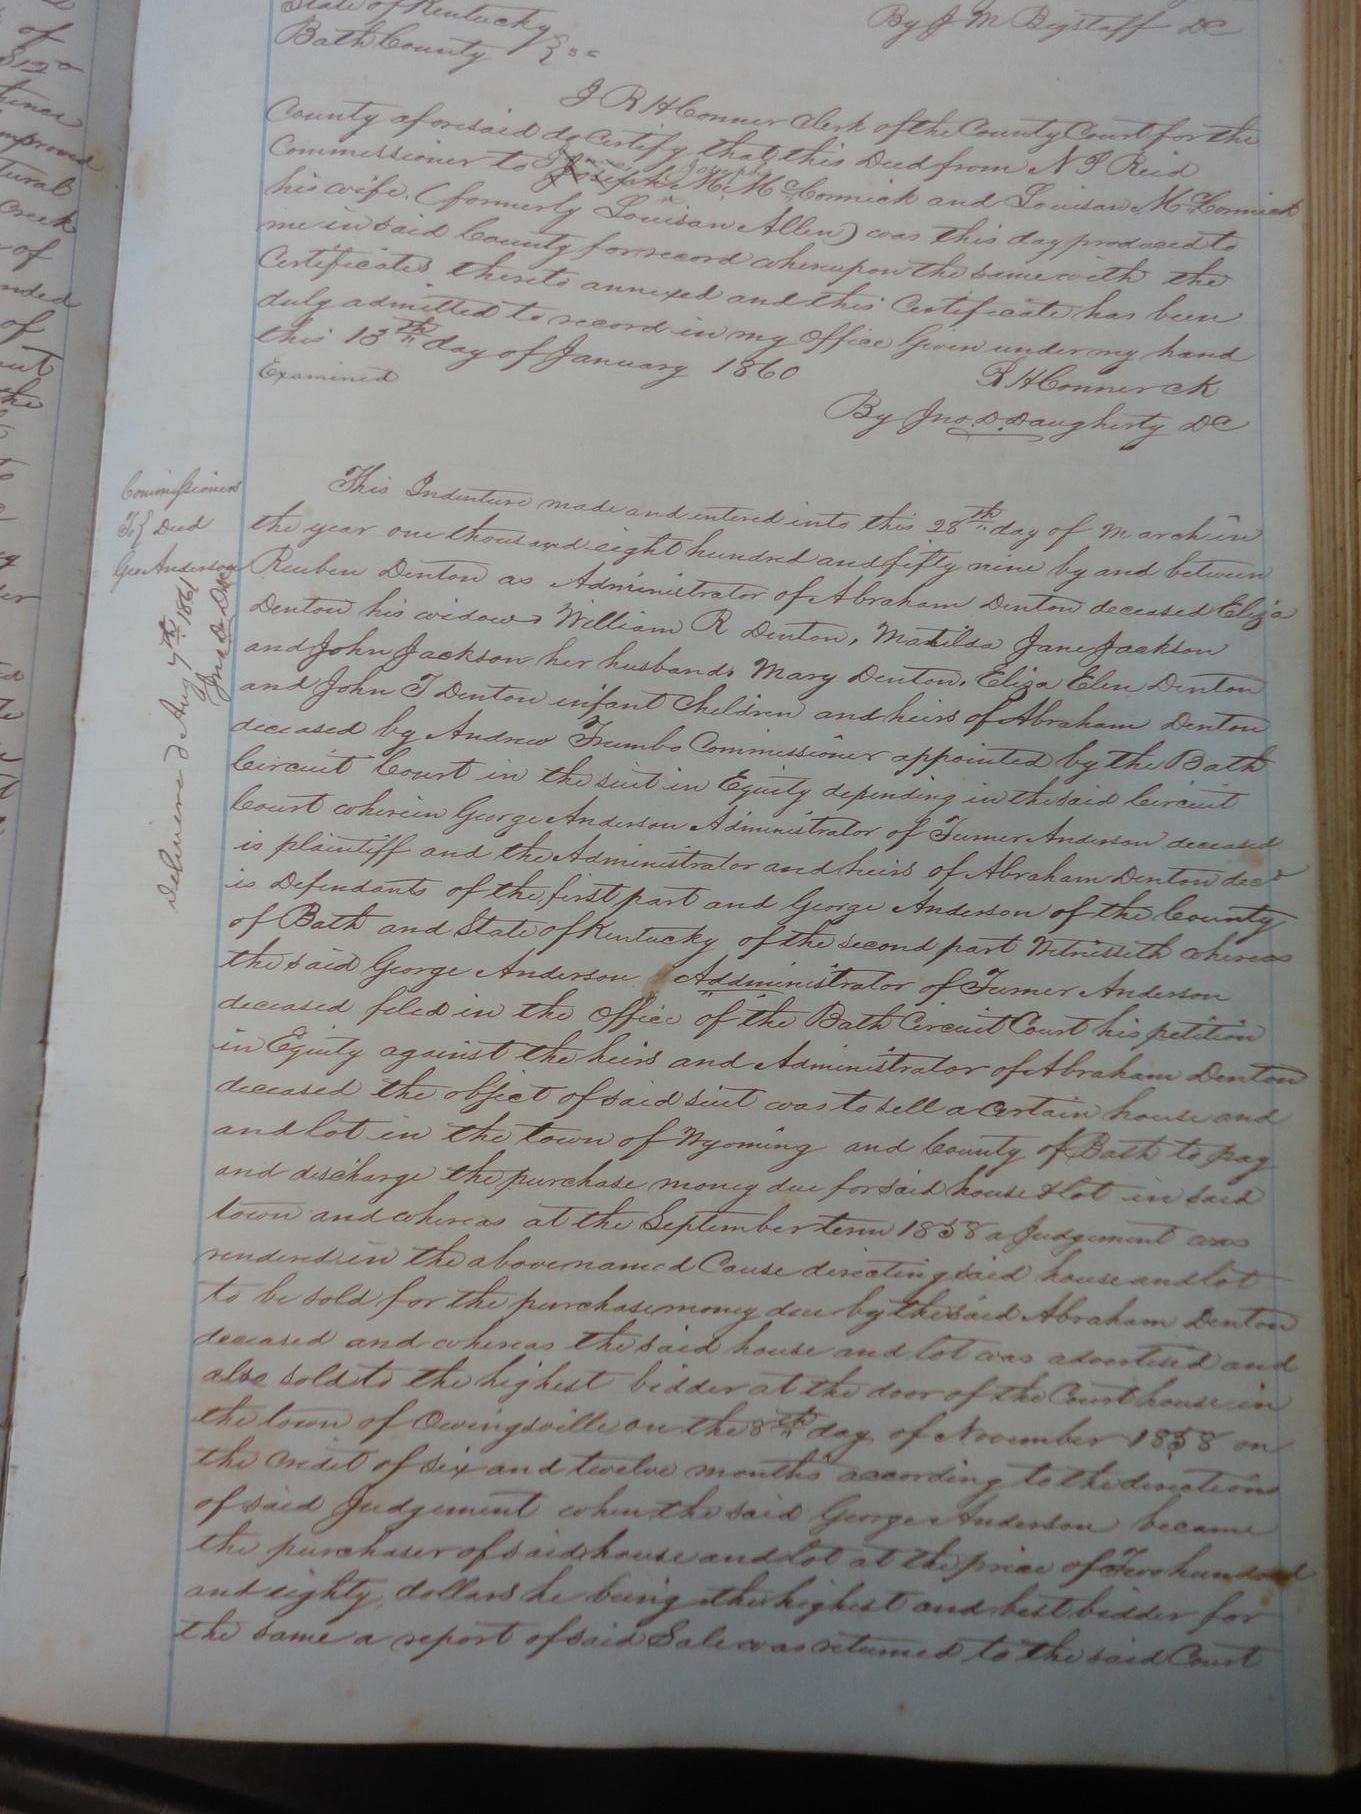 State of Kentucky } sc
By J M Bigstaff DC
Bath County
I R H Conner Clerk of the County Court for the
County aforesaid do certify that this Deed from N P Reid
Commissioner to James M. McCormick and Louisan McCormick
his wife. (formerly Louisan Allen) was this day produced to
me in said County for record whereupon the same with the
Certificates thereto annexed and this Certificate has been
duly admitted to record in my office Given under my hand
this 13th day of January 1860
Examined
R H Conner ck
By Jno. D. Daugherty DC
Commissioners
To } Deed
Geo Anderson
Delivered Aug 7th 1861
This Indenture made and entered into this 28th day of March in
the year one thousand eight hundred and fifty nine by and between
Reuben Denton as Administrator of Abraham Denton deceased Eliza
Denton his widow, William R Denton, Matilda Jane Jackson
and John Jackson her husband, Mary Denton, Eliza Elen Denton
and John T Denton infant Children and heirs of Abraham Denton
deceased by Andrew Trumbo Commissioner appointed by the Bath
Circuit Court in the suit in Equity depending in the said Circuit
Court wherein George Anderson Administrator of Turner Anderson deceased
is plaintiff and the Administrator and heirs of Abraham Denton decd
is Defendants of the first part and George Anderson of the County
of Bath and State of Kentucky of the second part Witnesseth whereas
the said George Anderson Addministrator of Turner Anderson
deceased filed in the office of the Bath Circuit Court his petition
in Equity against the heirs and Administrator of Abraham Denton
deceased the object of said suit was to sell a certain house and
and lot in the town of Wyoming and County of Bath to pay
and discharge the purchase money due for said house & lot in said
town and whereas at the September term 1858 a Judgement was
rendered in the above named Cause directing said house and lot
to be sold for the purchase money due by the said Abraham Denton
deceased and whereas the said house and lot was advertised and
also sold to the highest bidder at the door of the Court house in
the town of Owingsville on the 8th day of November 1858 on
the credit of six and twelve months according to the directions
of said Judgement when the said George Anderson became
the purchaser of said house and lot at the price of Two hundred
and eighty dollars he being the highest and best bidder for
the same a report of said Sale was returned to the said Court